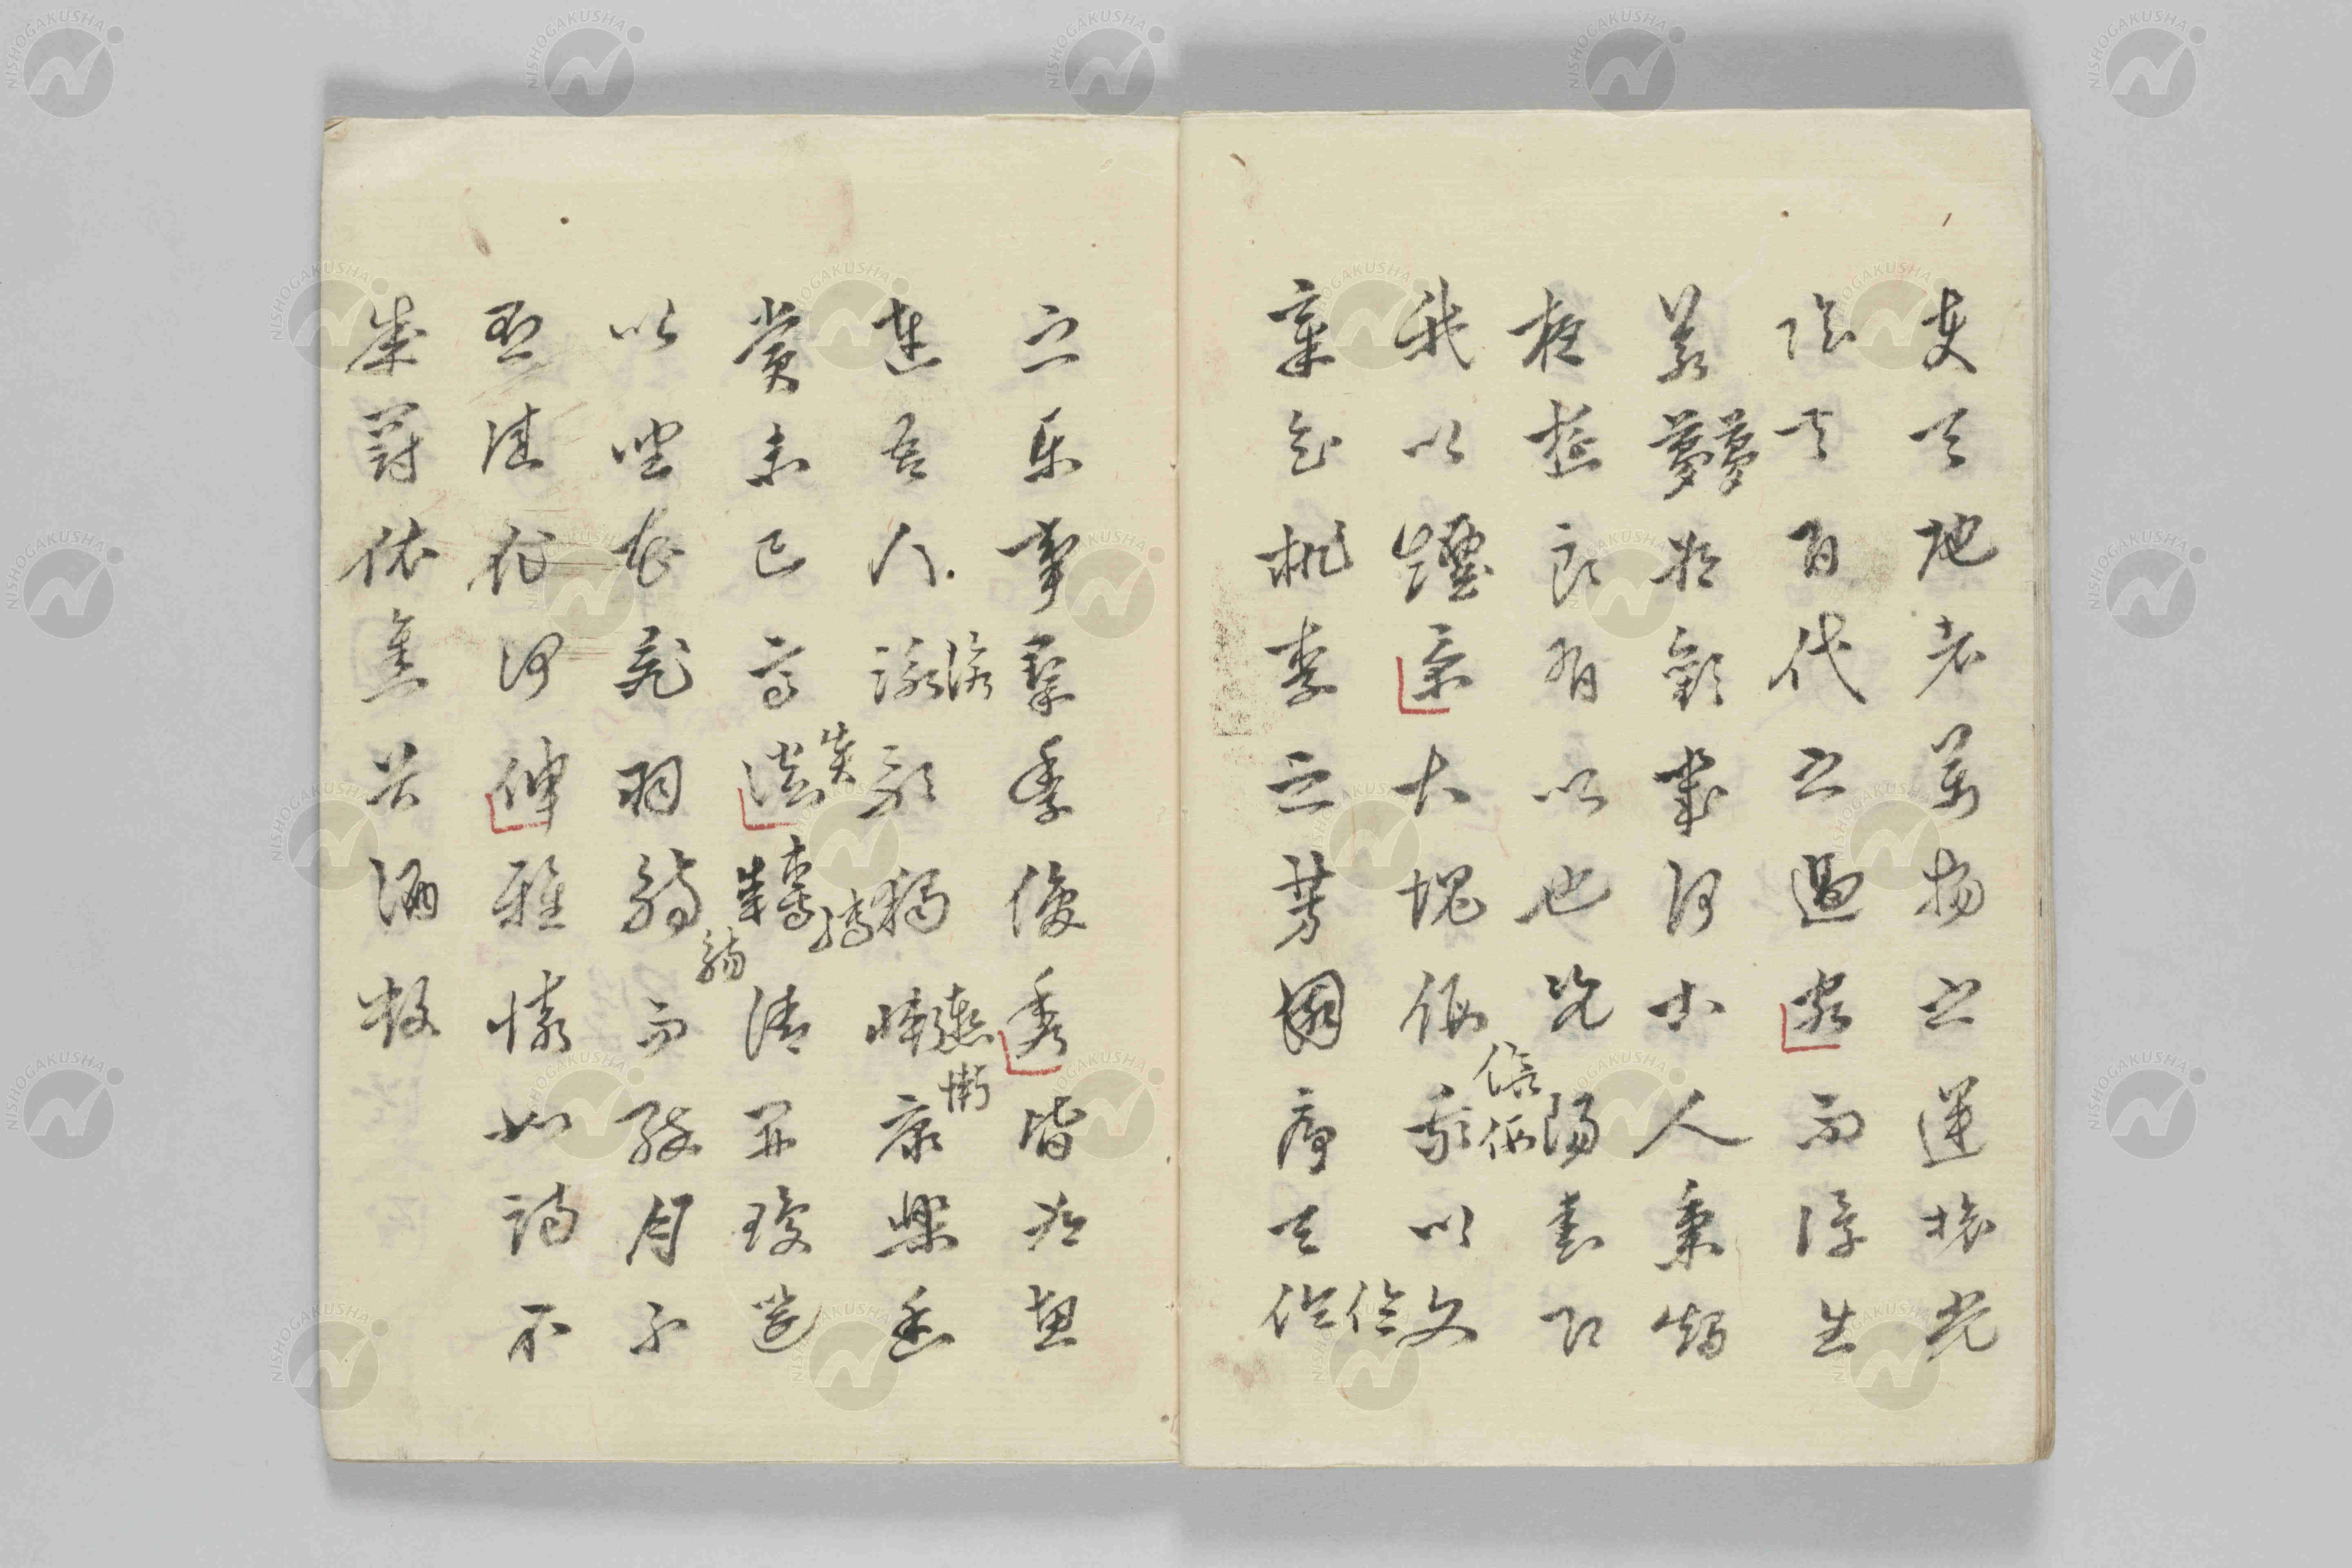 夫天地者萬物之逆旅光
陰百代之過客而浮生
若夢夢為歡幾何古人秉燭
夜遊良有以也況陽春召
我以煙景大塊假我以文
假
倫
章會桃李之芳園序天倫
之樂事群季俊秀皆為惠
連吾人詠歌獨慚康樂幽
慚
賞未已高談轉清開瓊筵
炎
轉
以坐花飛羽觴而醉月不
觴
有佳作何伸雅懷如詩不
成罰依金谷酒數
NISHOGAKUSHA